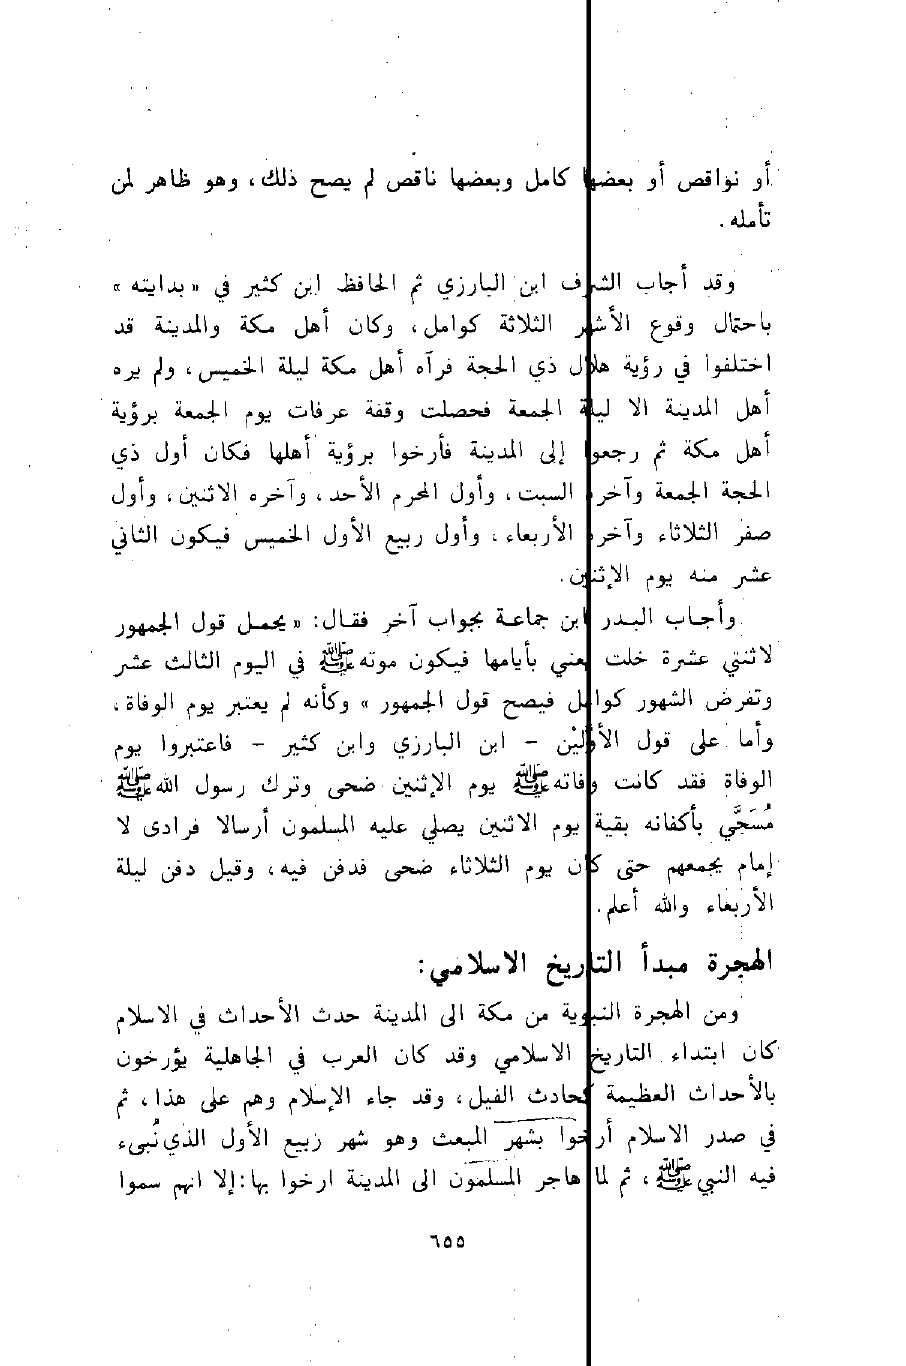 أو نواقص أو بعضها كامل وبعضها ناقص لم يصح ذلك، وهو ظاهر لمن
تأمله.
وقد أجاب الشرف ابن البارزي ثم الحافظ ابن كثير في «بدايته»
باحتمال وقوع الأشهر الثلاثة كوامل، وكان أهل مكة والمدينة قد
اختلفوا في رؤية هلال ذي الحجة فرآه أهل مكة ليلة الخميس، ولم يره
أهل المدينة الا ليلة الجمعة فحصلت وقفة عرفات يوم الجمعة برؤية
أهل مكة ثم رجعوا إلى المدينة فأرخوا برؤية أهلها فكان أول ذي
الحجة الجمعة وآخره السبت، وأول المحرم الأحد، وآخره الاثنين، وأول
صفر الثلاثاء وآخره الأربعاء، وأول ربيع الأول الخميس فيكون الثاني
عشر منه يوم الإثنين.
وأجاب البدر ابن جماعة بجواب آخر فقال: «يحمل قول الجمهور
لاثنتي عشرة خلت يعني بأيامها فيكون موته ﷺ في اليوم الثالث عشر
وتفرض الشهور كوامل فيصح قول الجمهور» وكأنه لم يعتبر يوم الوفاة،
وأما على قول الأوَّليْن – ابن البارزي وابن كثير – فاعتبروا يوم
الوفاة فقد كانت وفاته ﷺ يوم الإثنين ضحى وترك رسول الله ﷺ
مُسَجَّي بأكفانه بقية يوم الاثنين يصلي عليه المسلمون أرسالا فرادى لا
إمام يجمعهم حتى كان يوم الثلاثاء ضحى فدفن فيه، وقيل دفن ليلة
الأربعاء والله أعلم.
الهجرة مبدأ التاريخ الاسلامي:
ومن الهجرة النبوية من مكة الى المدينة حدث الأحداث في الاسلام
كان ابتداء التاريخ الاسلامي وقد كان العرب في الجاهلية يؤرخون
بالأحداث العظيمة كحادث الفيل، وقد جاء الإسلام وهم على هذا، ثم
في صدر الاسلام أرخوا بشهر المبعث وهو شهر ربيع الأول الذي نُبىء
فيه النبي ﷺ، ثم لما هاجر المسلمون الى المدينة ارخوا بها: إلا انهم سموا
٦٥٥